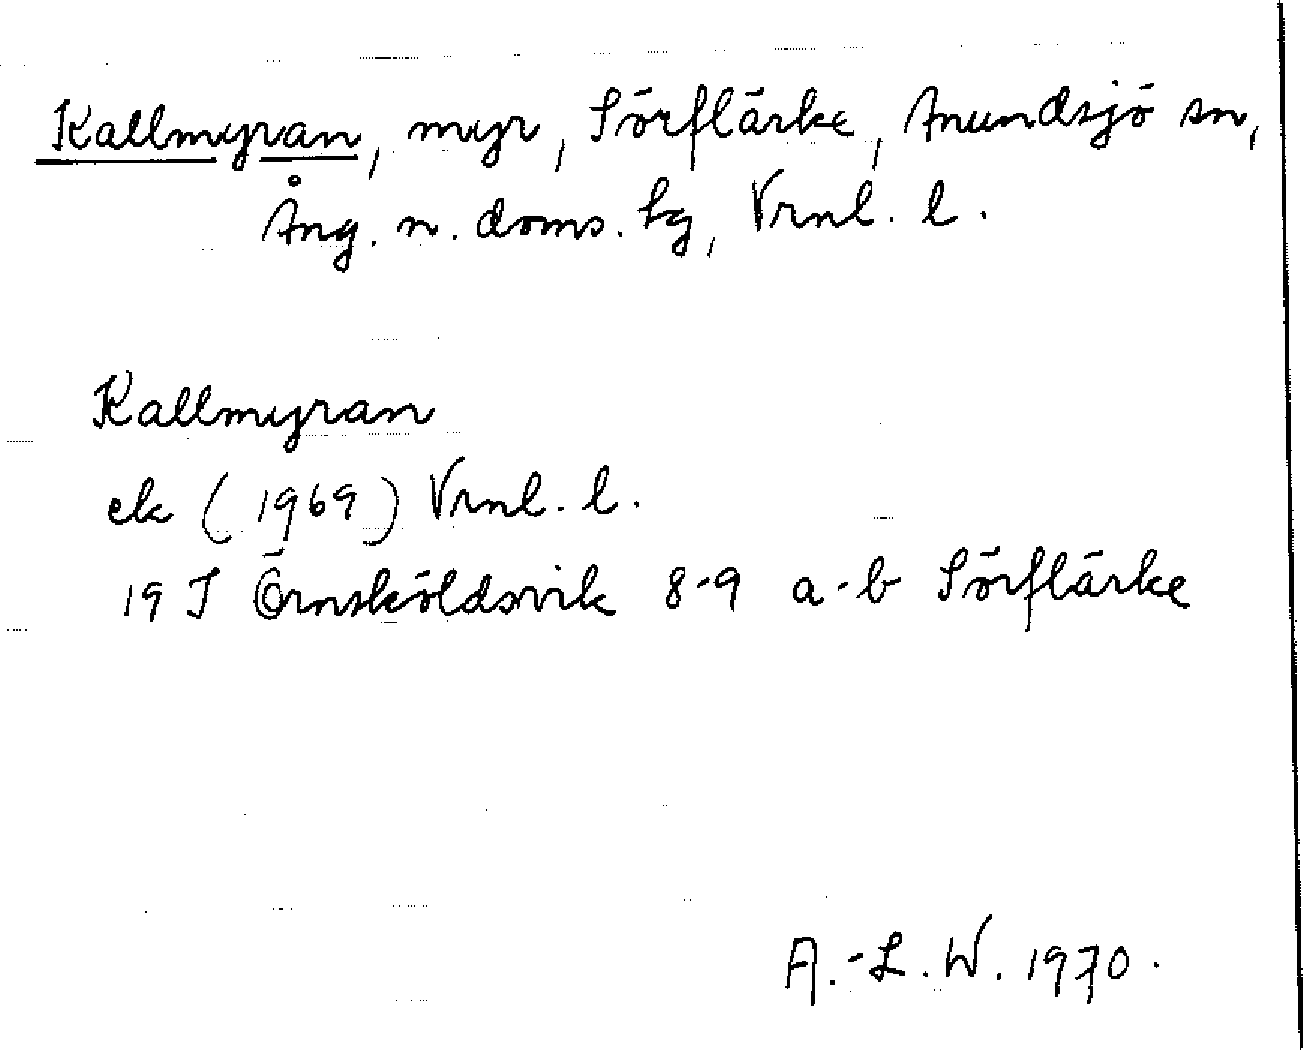 Kallmyran, myr, Sörflärke, Anundsjö sn,
Ång. n. doms. hg, Vrnl. l.
Kallmyran
ek (1969) Vrnl. l.
19 J Örnsköldsvik 8-9 a-b Sörflärke
A.-L. W. 1970.